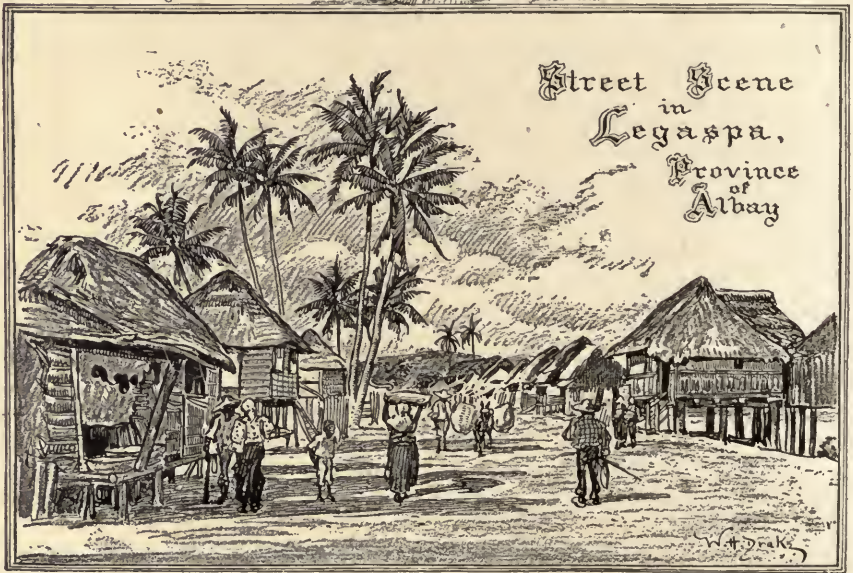 Street Scene
in
Legaspa,
Province
of
Albay
W.H. Drake